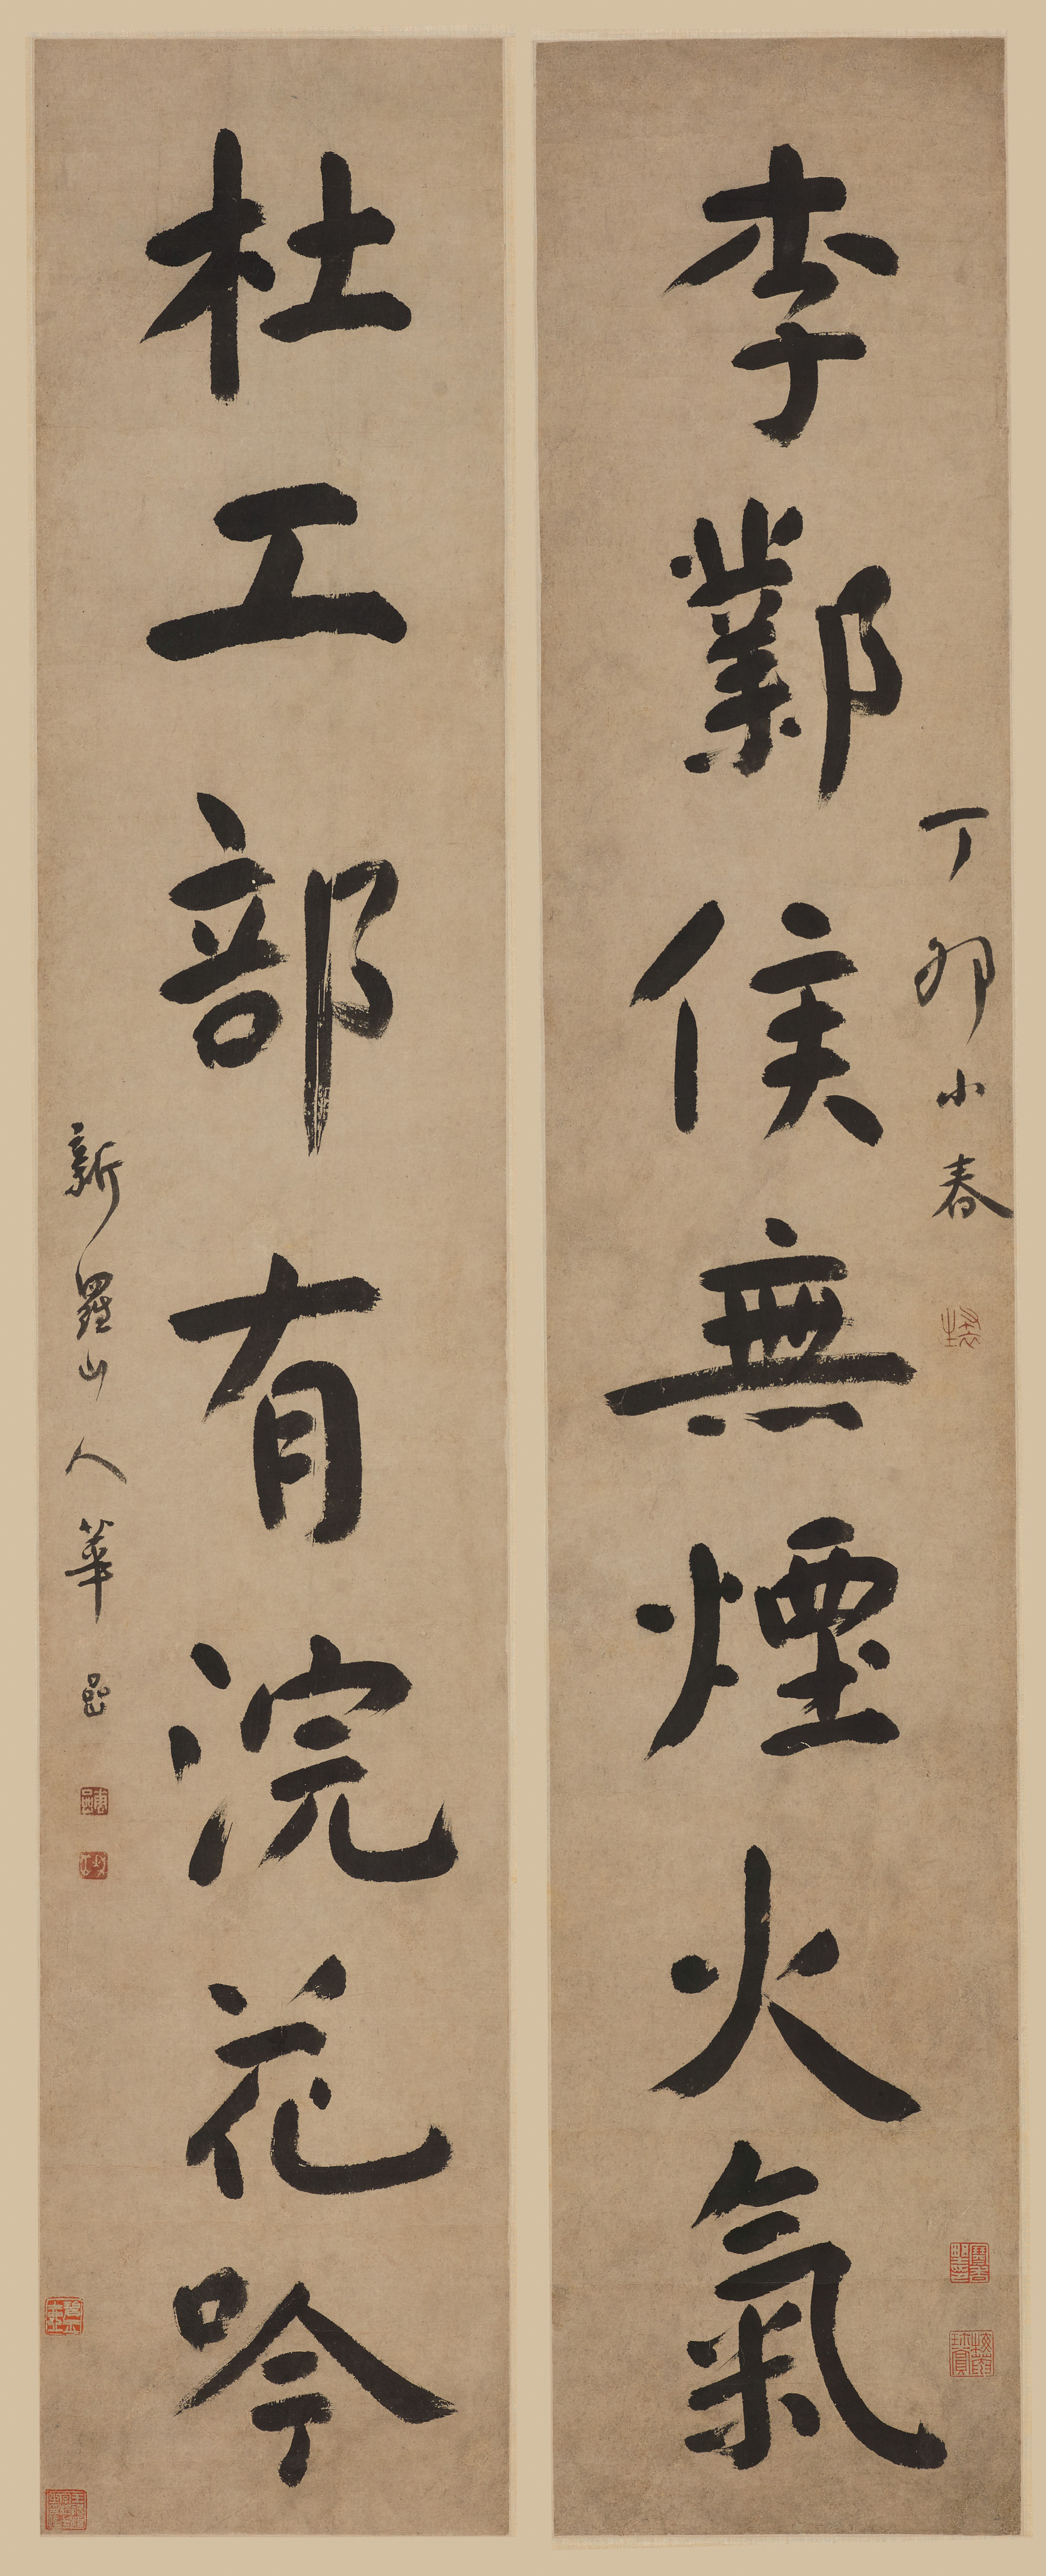 李鄴侯無煙火氣
丁卯小春
杜工部有浣花吟
新羅山人華喦